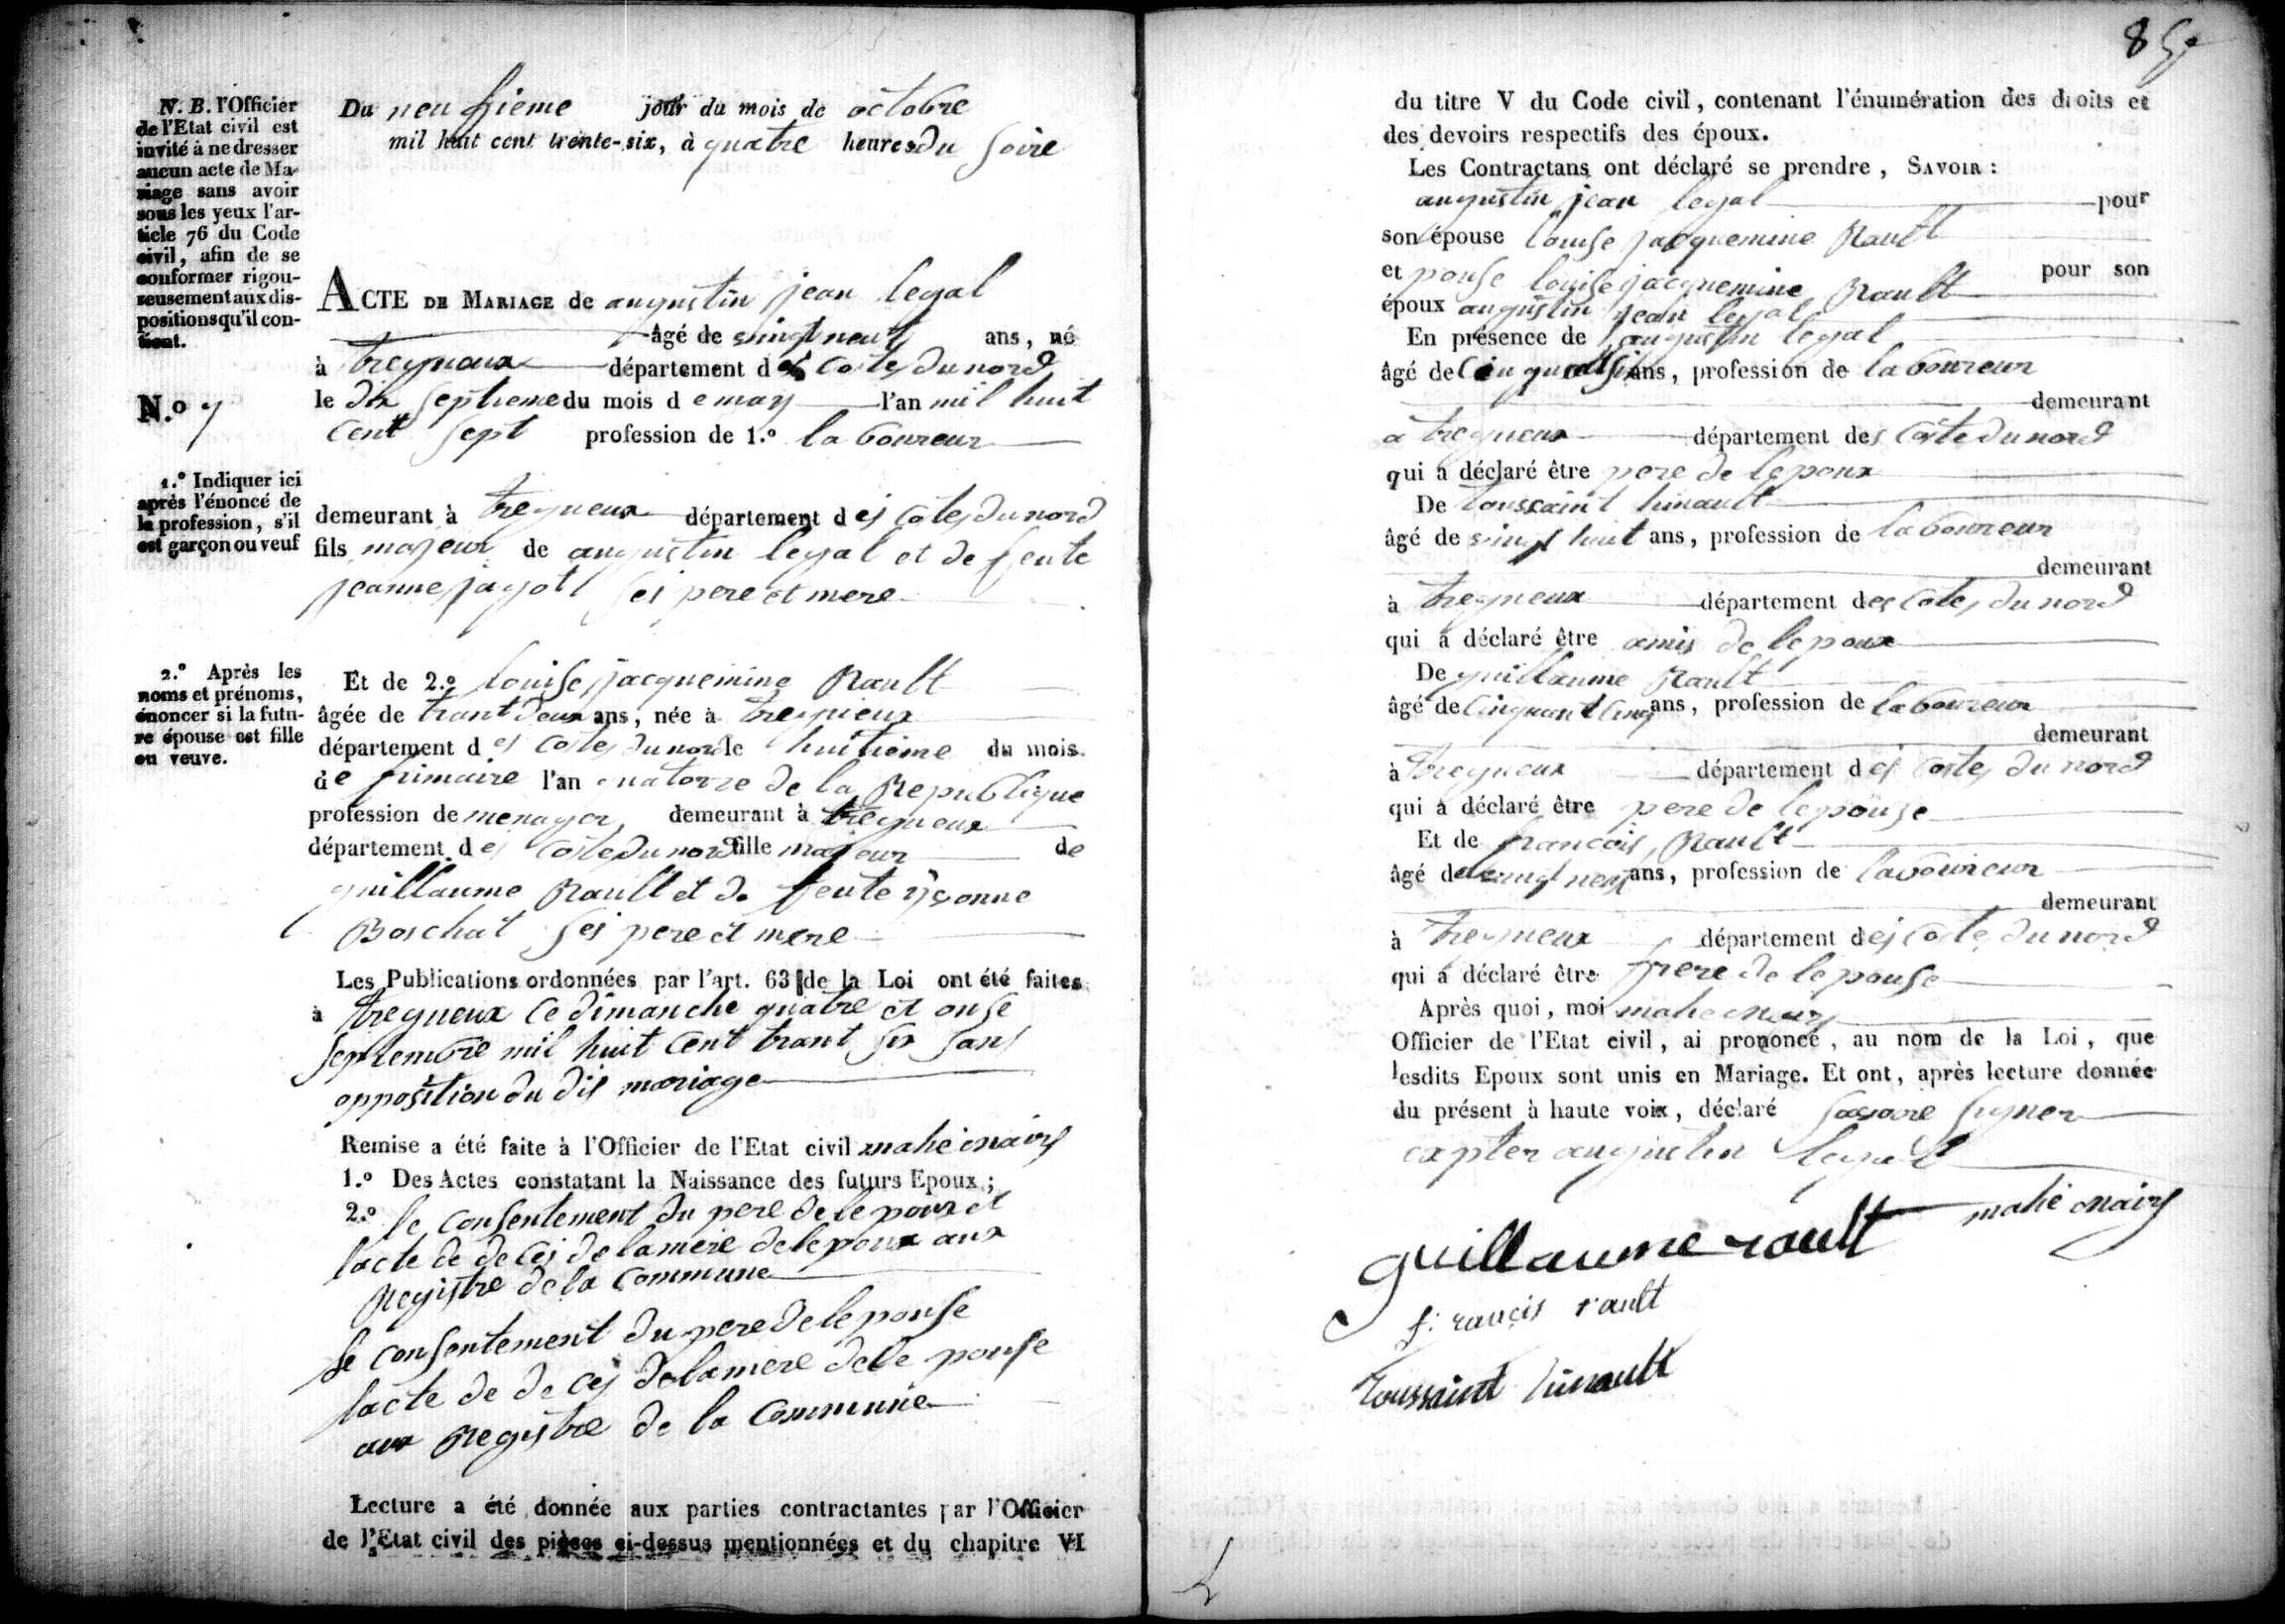 N. B. l'Officier
de l'Etat civil est
invité à ne dresser
aucun acte de Ma-
riage sans avoir
sous les yeux l'ar-
ticle 76 du Code
civil, afin de se
conformer rigou-
reusement aux dis-
positions qu'il con-
tient.
N.º 7
1.º Indiquer ici
après l'énoncé de
la profession, s'il
est garçon ou veuf
2.º Après les
noms et prénoms,
énoncer si la futu-
re épouse est fille
ou veuve.
Du neufieme jour du mois de octobre
mil huit cent trente-six, à quatre heures du soire
ACTE DE MARIAGE de augustin jean legal
âgé de vingt neuf ans, né
à tregneux département des Costes du nord
le dix septieme du mois de may l'an mil huit
cent sept profession de 1.º laboureur
demeurant à tregueux département des côtes du nord
fils majeur de augustin legal et de feute
jeanne jagot ses pere et mere
Et de 2.º louise jacquemine Rault
âgée de trant deux ans, née à tregueux
département des costes du nord le huitieme du mois
de frimaire l'an quatorze de la Republique
profession de menager demeurant à tregueux
département des coste du nord fille majeur de
guillaume Rault et de feute yvonne
Boschat ses pere et mere
Les Publications ordonnées par l'art. 63 de la Loi ont été faites
à tregueux ce dimanche quatre et onse
septembre mil huit cent trant six sans
opposition du dis mariage
Remise a été faite à l'Officier de l'Etat civil mahé mairy
1.º Des Actes constatant la Naissance des futurs Epoux ;
2.º le consentement du pere de lepoux et
lacte de deces de lamere de lepoux aux
Registre de la commune
le consentement du pere de lepouse
lacte de de ces de lamere de le pouse
aux Registre de la commune
Lecture a été donnée aux parties contractantes par l'Officier
de l'Etat civil des pièces ci-dessus mentionnées et du chapitre VI
85
du titre V du Code civil, contenant l'énumération des droits et
des devoirs respectifs des époux.
Les Contractans ont déclaré se prendre, SAVOIR :
augustin jean legal pour
son épouse louise jacquemine Rault
et pouse louise jacquemine Rault pour son
époux augustin jean legal
En présence de augustin legal
âgé de Cinquant six ans, profession de laboureur
demeurant
à tregueux département des Côte du nord
qui a déclaré être pere de lepoux
De toussaint hinault
âgé de vingt huit ans, profession de laboureur
demeurant
à tregueux département des Cotes du nord
qui a déclaré être amis de lepoux
De guillaume Rault
âgé de Cinquant cinq ans, profession de laboureur
demeurant
à tregueux département des Costes du nord
qui a déclaré être pere de lepouse
Et de francois Rault
âgé de vingt neuf ans, profession de laboureur
demeurant
à tregueux département des Coste du nord
qui a déclaré être frere de lepouse
Après quoi, moi mahé mairy
Officier de l'Etat civil, ai prononcé, au nom de la Loi, que
lesdits Epoux sont unis en Mariage. Et ont, après lecture donnée
du présent à haute voix, déclaré savoire signer
expter augustin legal
mahé mairy
guillaume rault
francis rault
toussaint hinault